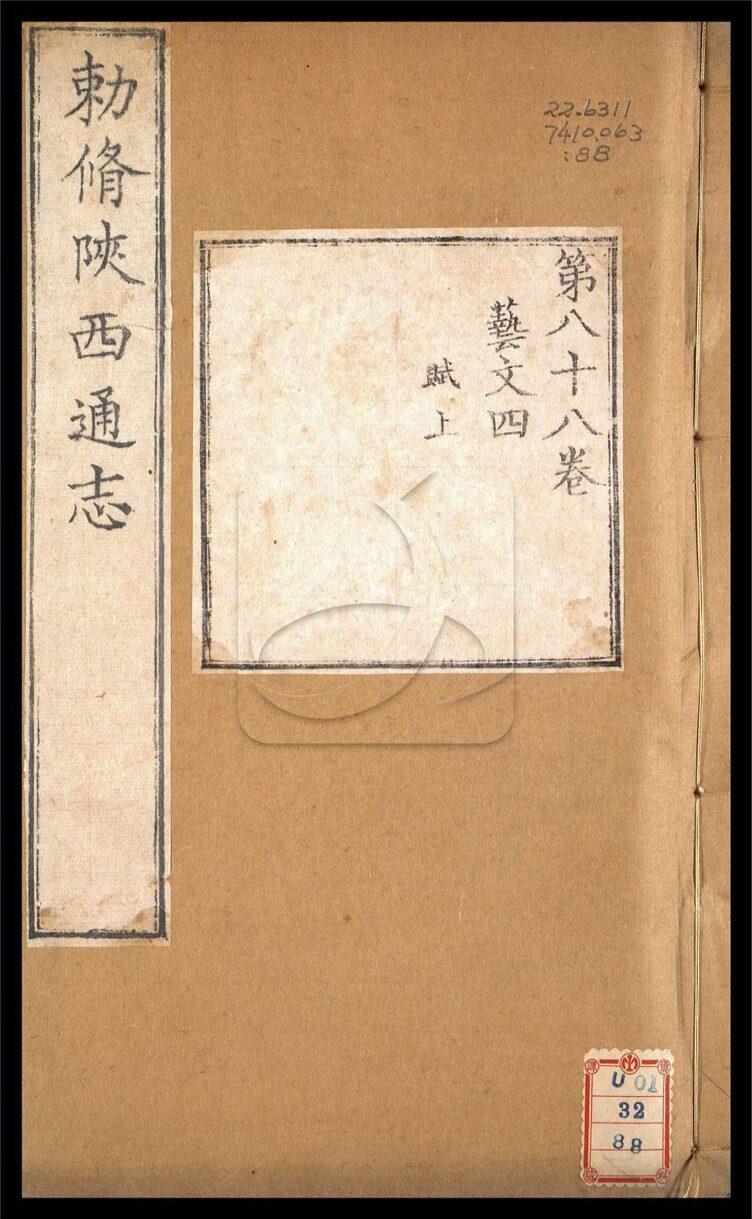 勅脩陝西通志
第八十八卷
藝文四
賦上
22.6311
7410.063
:88
U 01
32
88